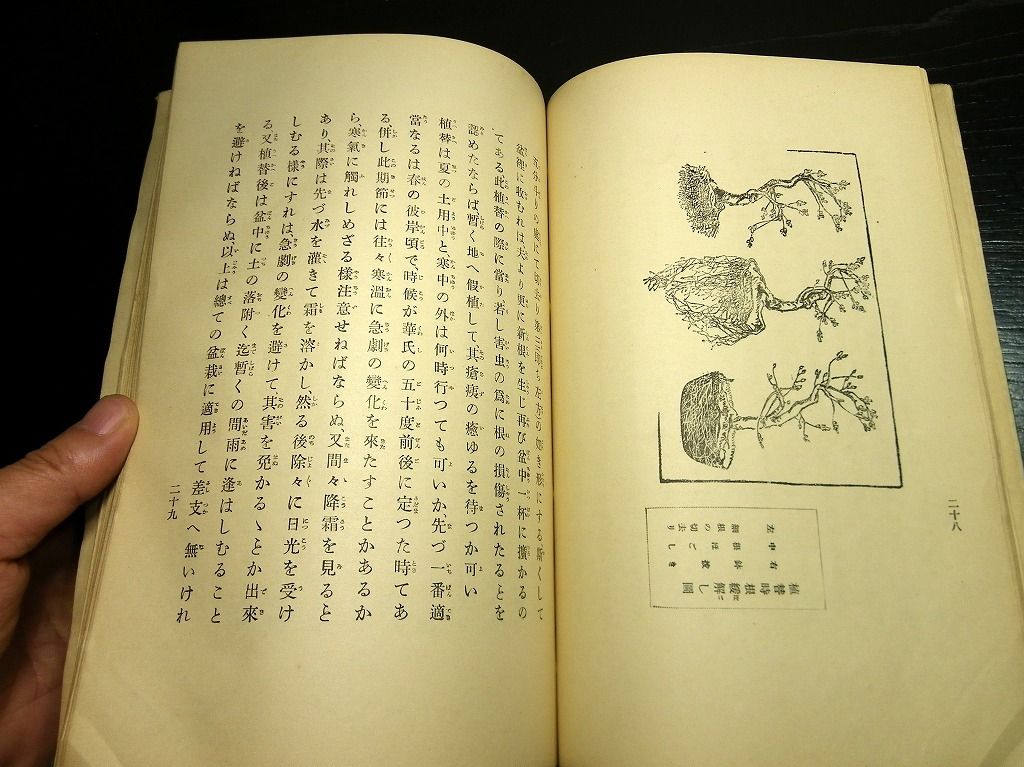 二十八
植替時根緩解し圖
右 鉢拔き
中 根ほごし
左 細根の切去り
左方の如き形にする斯くして
盆裡に收むれは夫より更に新根を生じ再び盆中一杯に擴かるの
てある此植替の際に當り若し害虫の爲に根の損傷されたることを
認めたならば暫く地へ假植して、其瘡痍の癒ゆるを待つか可い
植替は夏の土用中と寒中の外は何時行つても可いか、先づ一番適
當なるは春の彼岸頃で時候が華氏の五十度前後に定つた時てあ
る併し此期節には往々寒溫に急劇の變化を來たすことかあるか
ら、寒氣に觸れしめざる樣注意せねばならぬ、又間々降霜を見ると
あり、其際は先づ水を灌きて霜を溶かし、然る後除々に日光を受け
しむる樣にすれは、急劇の變化を避けて其害を免かるゝとか出來
る又植替後は盆中に土の落附く迄暫くの間雨に逢はしむること
を避けねばならぬ、以上は總ての盆栽に適用して差支へ無いけれ
二十九